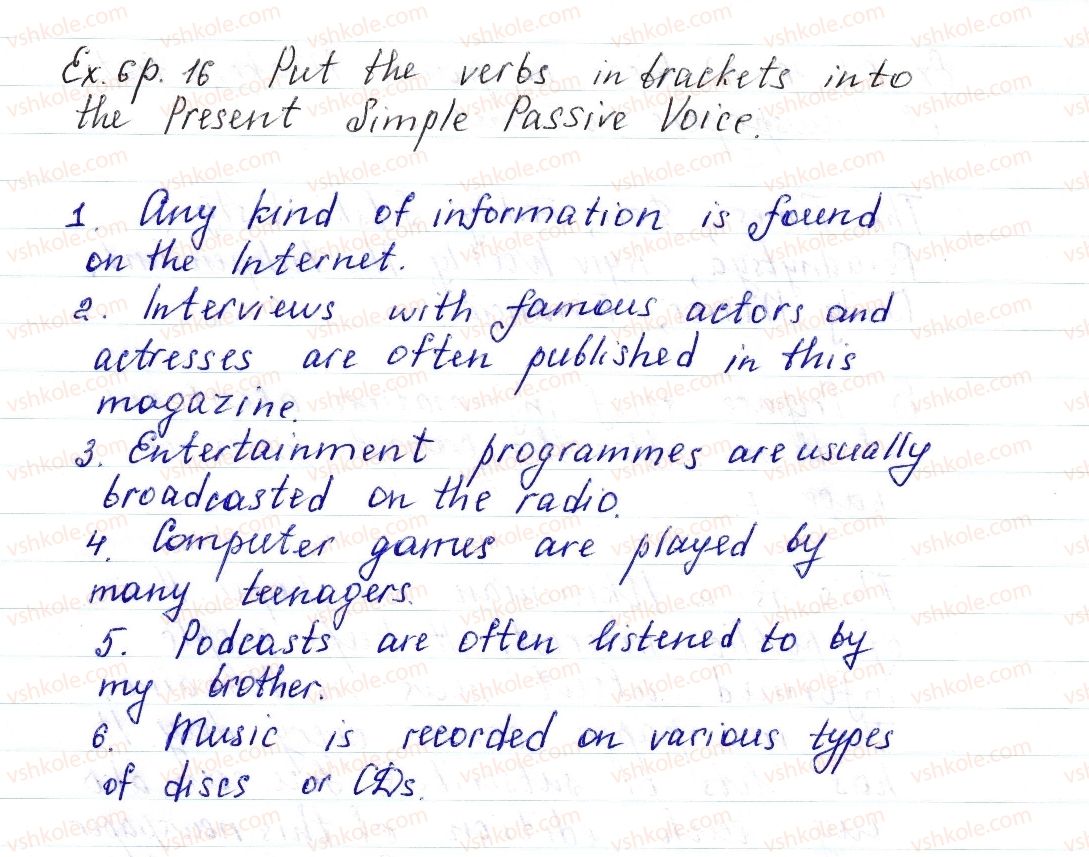 Ex. 6 p. 16 Put the verbs in brackets into
the Present Simple Passive Voice.
1. Any kind of information is found
on the Internet.
2. Interviews with famous actors and
actresses are often published in this
magazine.
3. Entertainment programmes are usually
broadcasted on the radio.
4. Computer games are played by
many teenagers.
5. Podcasts are often listened to by
my brother.
6. Music is recorded on various types
of discs or CDs.